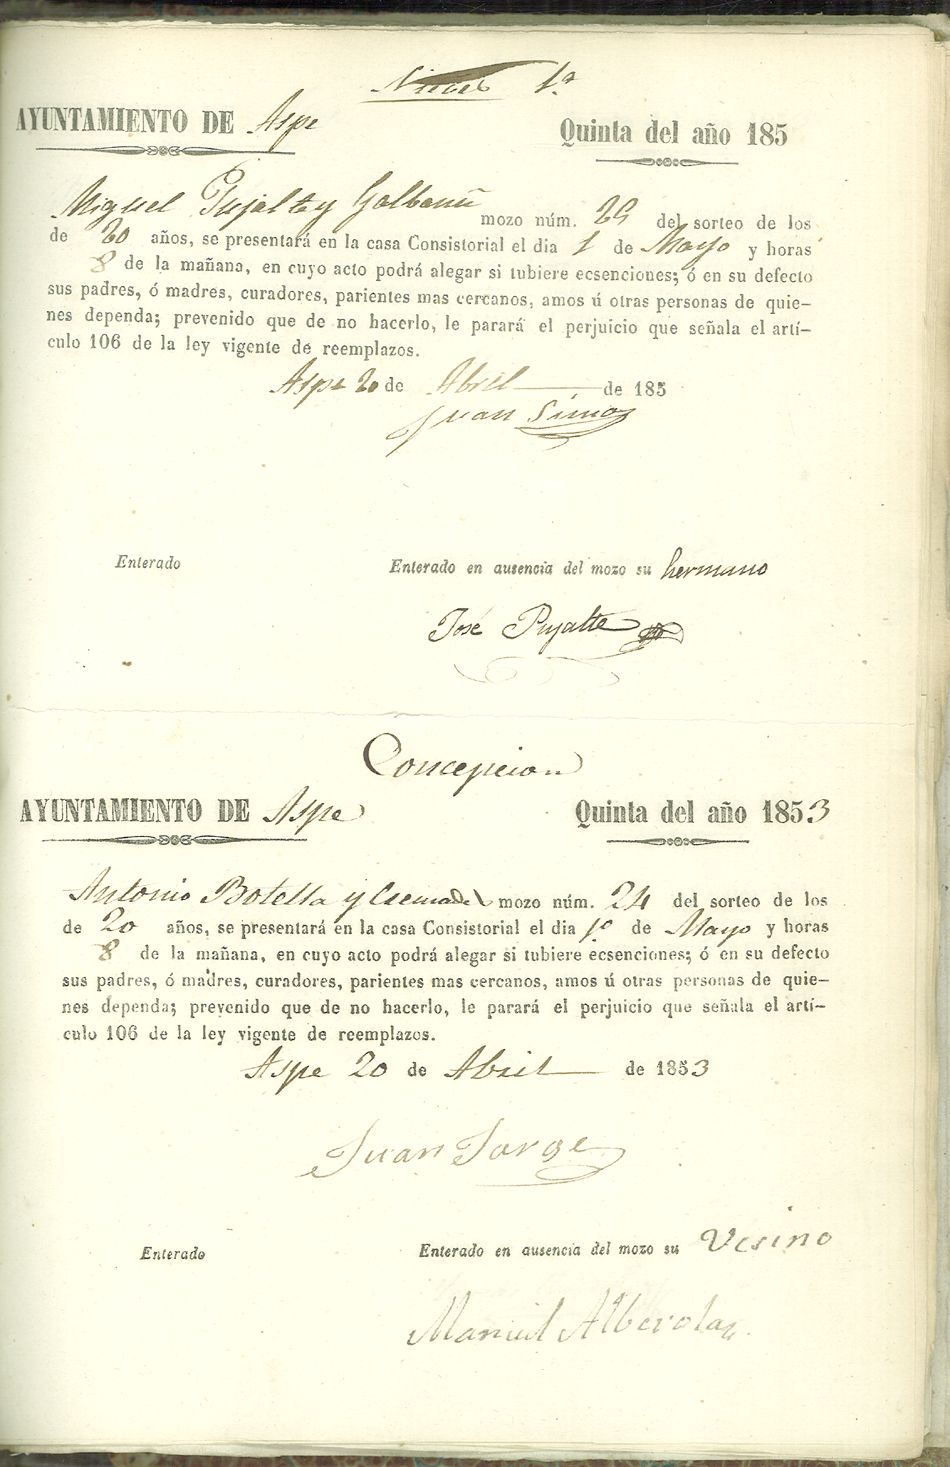 Nieves 1ª
AYUNTAMIENTO DE Aspe
Quinta del año 185
Miguel Pujalte y Galbañ mozo núm. del sorteo de los
de 20 años, se presentará en la casa Consistorial el dia 1 de Mayo y horas
8 de la mañana, en cuyo acto podrá alegar si tubiere ecsenciones; ó en su defecto
sus padres, ó madres, curadores, parientes mas cercanos, amos ú otras personas de quie-
nes dependa; prevenido que de no hacerlo, le parará el perjuicio que señala el artí-
culo 106 de la ley vigente de reemplazos.
Aspe 20 de Abril de 185
Juan
Enterado
Enterado en ausencia del mozo su hermano
José Pujalte
Concepcion
AYUNTAMIENTO DE Aspe
Quinta del año 1853
Antonio Botella y mozo núm. 24 del sorteo de los
de 20 años, se presentará en la casa Consistorial el dia 1º de Mayo y horas
8 de la mañana, en cuyo acto podrá alegar si tubiere ecsenciones; ó en su defecto
sus padres, ó madres, curadores, parientes mas cercanos, amos ú otras personas de quie-
nes dependa; prevenido que de no hacerlo, le parará el perjuicio que señala el artí-
culo 106 de la ley vigente de reemplazos.
Aspe 20 de Abril de 1853
Juan Jorge
Enterado
Enterado en ausencia del mozo su Vesino
Manuel Alberola